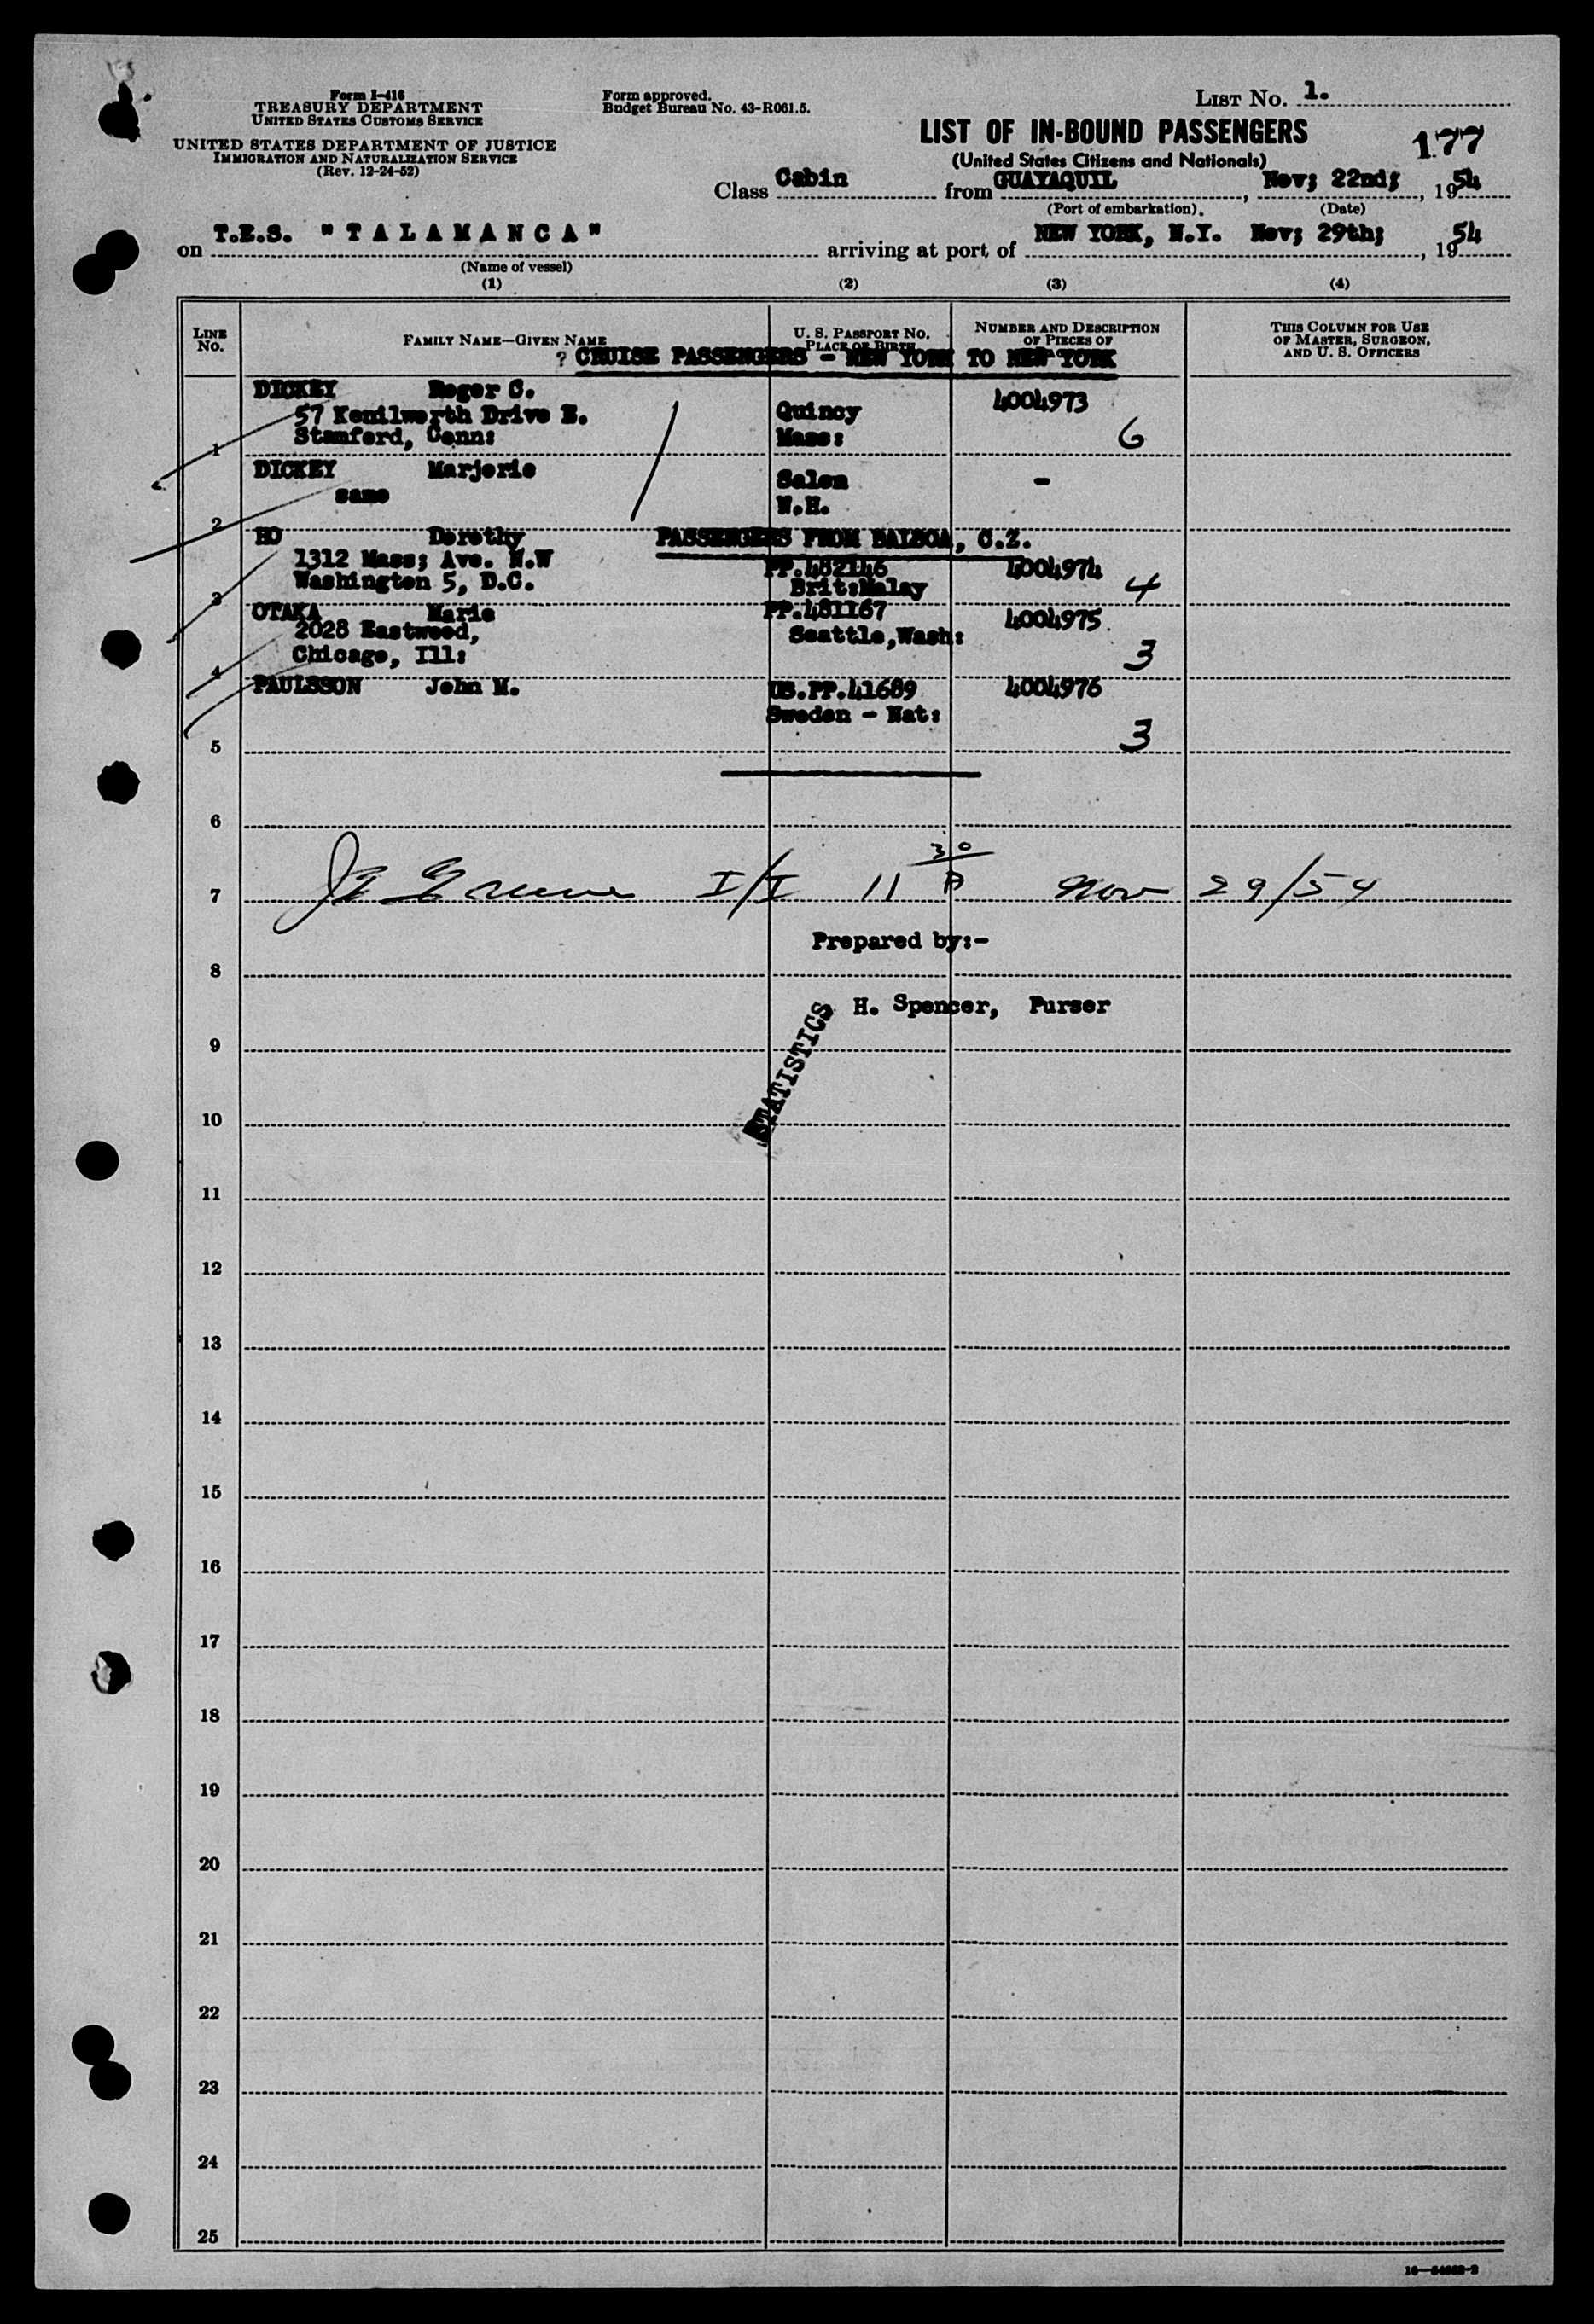 Form I-416
TREASURY DEPARTMENT
UNITED STATES CUSTOMS SERVICE
UNITED STATES DEPARTMENT OF JUSTICE
IMMIGRATION AND NATURALIZATION SERVICE
(Rev. 12-24-52)
Form approved.
Budget Bureau No. 43-R061.5.
LIST No. 1.
LIST OF IN-BOUND PASSENGERS
177
(United States Citizens and Nationals)
Class Cabin from GUAYAQUIL, Nov; 22nd;, 1954
(Port of embarkation) (Date)
on T.E.S. "TALAMANCA" arriving at port of NEW YORK, N.Y. Nov; 29th;, 1954
(Name of vessel)
(1) (2) (3) (4)
LINE No. FAMILY NAME—GIVEN NAME U. S. PASSPORT No. PLACE OF BIRTH NUMBER AND DESCRIPTION OF PIECES OF THIS COLUMN FOR USE OF MASTER, SURGEON, AND U. S. OFFICERS
? CRUISE PASSENGERS - NEW YORK TO NEW YORK
DICKEY Roger C. 4004973
57 Kenilworth Drive E. Quincy
1 Stamford, Conn: Mass: 6
DICKEY Marjorie Salem -
2 same N.H.
PASSENGERS FROM BALBOA, C.Z.
HO Dorothy
1312 Mass; Ave. N.W PP.482146 4004974
3 Washington 5, D.C. Brit:Malay 4
OTAKA Marie PP.481167 4004975
2028 Eastwood, Seattle,Wash:
4 Chicago, Ill: 3
PAULSSON John M. US.PP.41689 4004976
Sweden - Nat:
5 3
6
7 I/I 11 30 A Nov 29/54
Prepared by:-
8
H. Spencer, Purser
9
STATISTICS
10
11
12
13
14
15
16
17
18
19
20
21
22
23
24
25